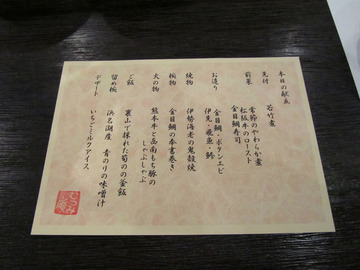 本日の献立
先付　若竹煮
前菜　常節のやわらか煮
松阪牛のロースト
金目鯛寿司
お造り　金目鯛・ボタンエビ
伊先・飛魚・鯵
焼物　伊勢海老の鬼殻焼
椀物　金目鯛の奉書巻き
火の物　熊本牛と岳南もち豚の
しゃぶしゃぶ
ご飯　裏山で採れた筍の釜飯
留め椀　浜名湖産　青のりの味噌汁
デザート　いちごミルクアイス